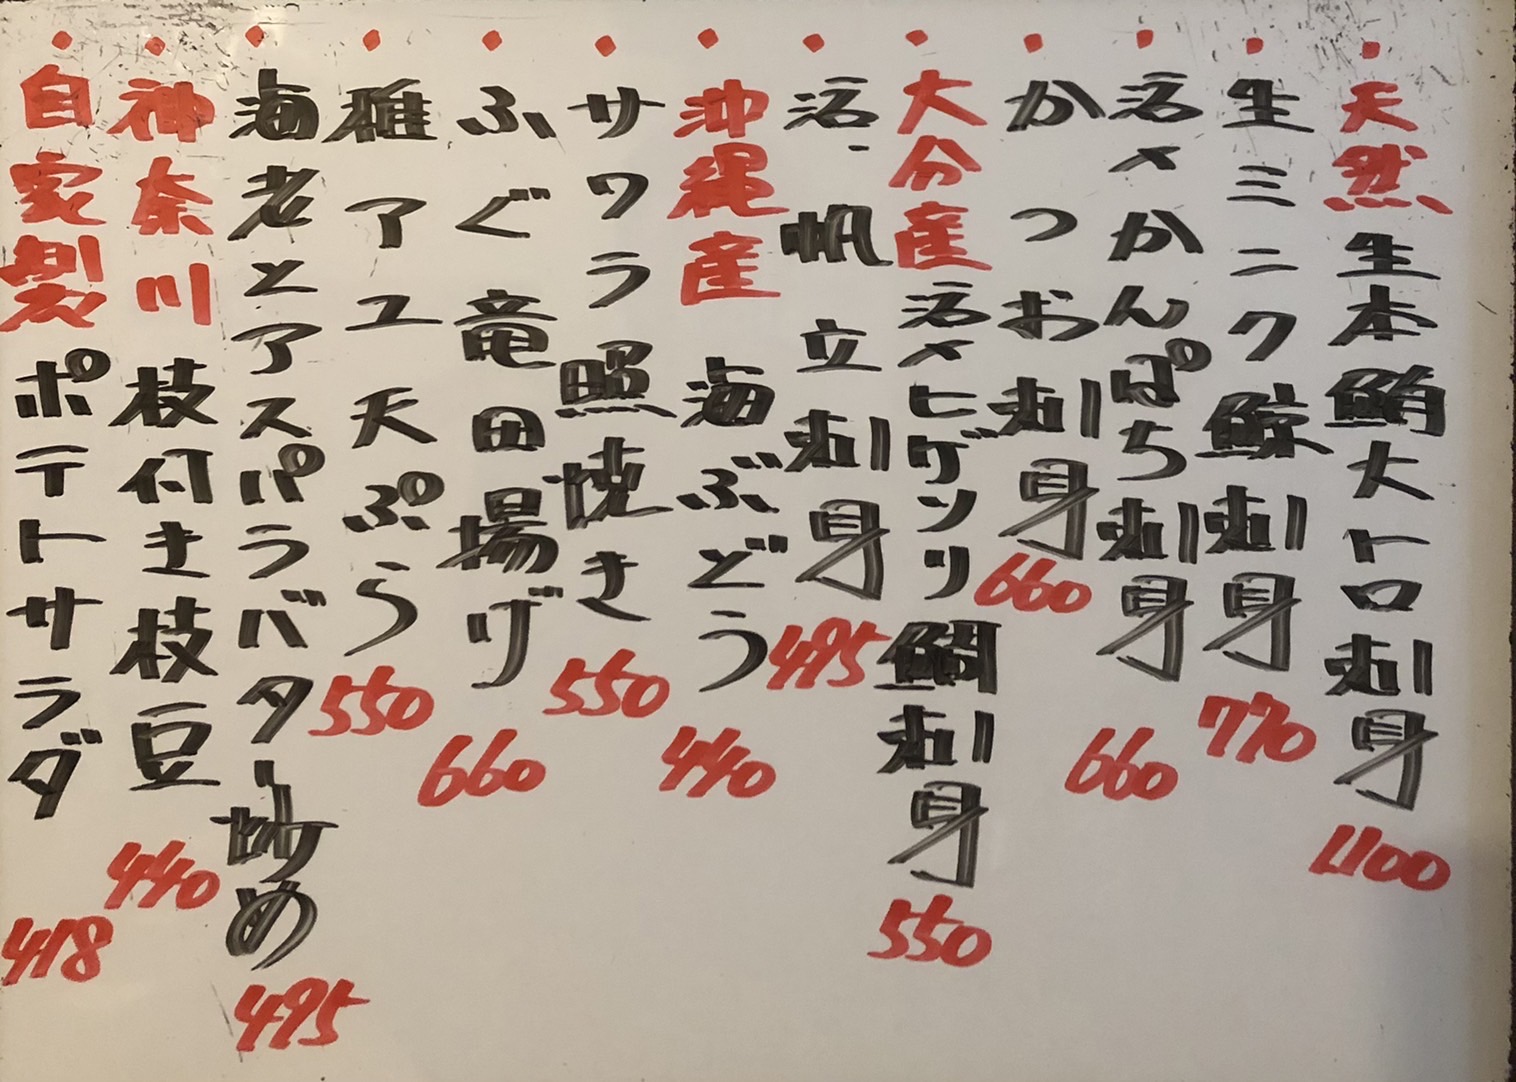 ・天然生本鮪大トロ刺身 1100
・生ミンク鯨刺身 770
・活〆かんぱち刺身 660
・かつお刺身 660
・大分産活〆ヒゲソリ鯛刺身 550
・活帆立刺身 495
・沖縄産海ぶどう 440
・サワラ照焼き 550
・ふぐ竜田揚げ 660
・稚アユ天ぷら 550
・海老とアスパラバター炒め 495
・神奈川枝付き枝豆 440
・自家製ポテトサラダ 418